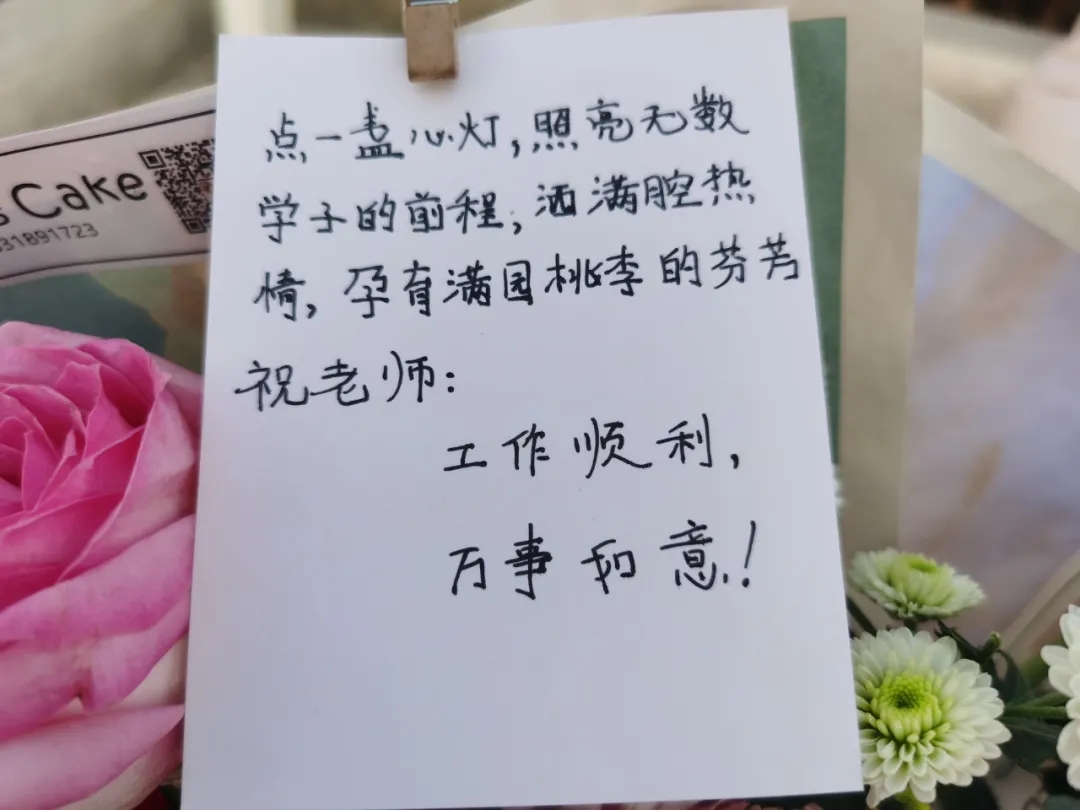 点一盏心灯,照亮无数
学子的前程,洒满腔热
情,孕育满园桃李的芬芳
祝老师:
工作顺利,
万事如意!
Cake
31891723